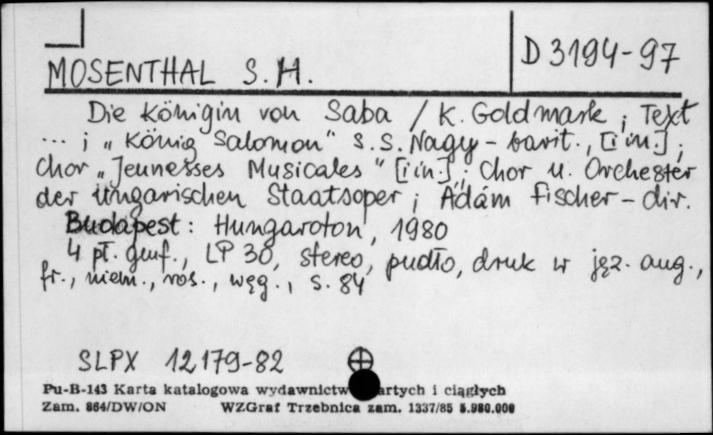 D 3194-97
MOSENTHAL S.H.
Die Königin von Saba / K. Goldmark ; Text
... ; „König Salomon" S.S. Nagy - baryt., [i in.] ;
Chor „Jeunesses Musicales" [i in.] ; Chor u. Orchester
der Ungarischen Staatsoper ; Ádám Fischer - dir.
Budapest : Hungaroton, 1980
4 pł. gmf., LP 30, stereo, pudło, druk w jęz. ang.,
fr., niem., ros., węg., s. 84
SLPX 12179-82
Pu-B-143 Karta katalogowa wydawnictw artych i ciągłych
Zam. 864/DW/ON WZGraf Trzebnica zam. 1337/85 5.980.000